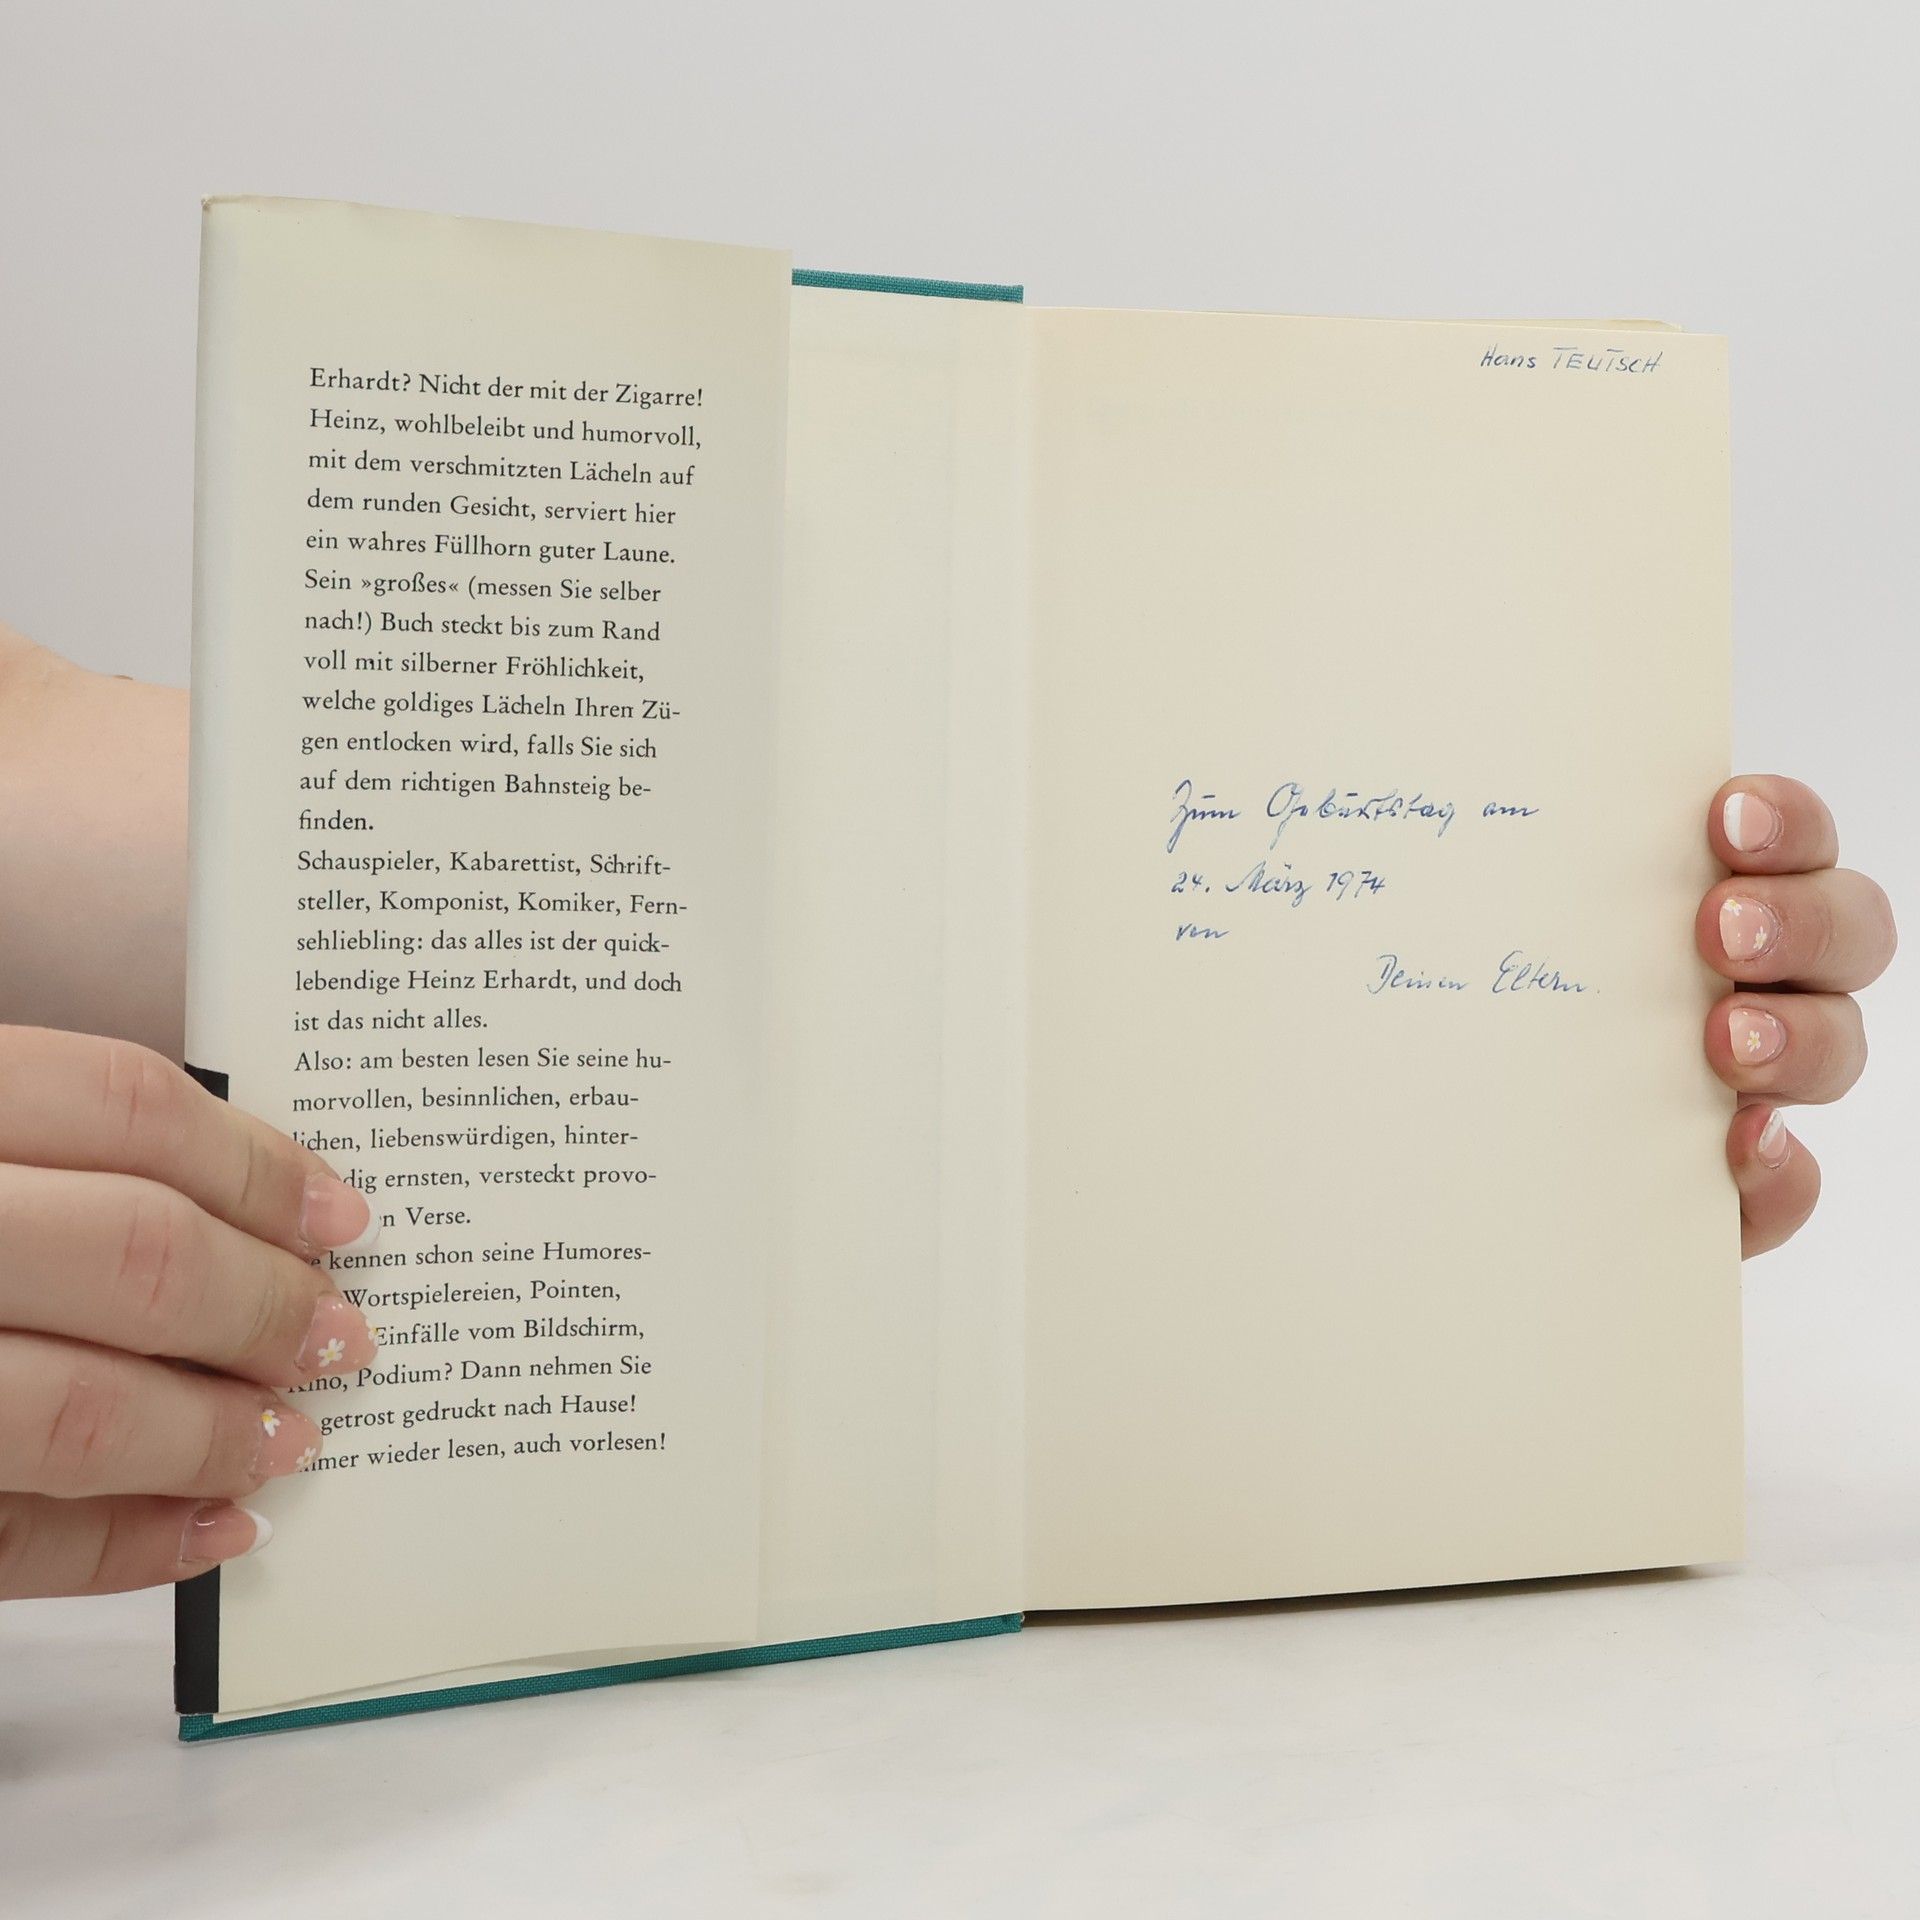 Erhardt? Nicht der mit der Zigarre!
Heinz, wohlbeleibt und humorvoll,
mit dem verschmitzten Lächeln auf
dem runden Gesicht, serviert hier
ein wahres Füllhorn guter Laune.
Sein »großes« (messen Sie selber
nach!) Buch steckt bis zum Rand
voll mit silberner Fröhlichkeit,
welche goldiges Lächeln Ihren Zü-
gen entlocken wird, falls Sie sich
auf dem richtigen Bahnsteig be-
finden.
Schauspieler, Kabarettist, Schrift-
steller, Komponist, Komiker, Fern-
sehliebling: das alles ist der quick-
lebendige Heinz Erhardt, und doch
ist das nicht alles.
Also: am besten lesen Sie seine hu-
morvollen, besinnlichen, erbau-
lichen, liebenswürdigen, hinter-
dig ernsten, versteckt provo-
n Verse.
kennen schon seine Humores-
Wortspielereien, Pointen,
Einfälle vom Bildschirm,
Kino, Podium? Dann nehmen Sie
getrost gedruckt nach Hause!
mer wieder lesen, auch vorlesen!
Hans TEUTSCH
Zum Geburtstag am
24. März 1974
von
Deinen Eltern.